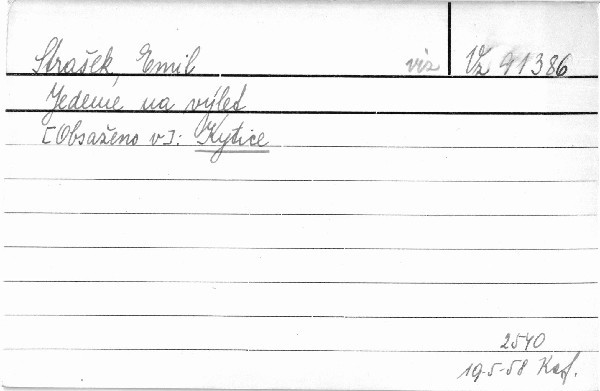 Strašek, Emil viz Vz 91386
Jedeme na výlet
[Obsaženo v]: Kytice
2540
19-5-58 Kaf.